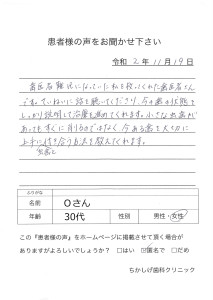 患者様の声をお聞かせ下さい
令和 2年 11月 19日
歯医者難民になっていた私を救ってくれた歯医者さん
です。ていねいに話を聴いてくださり、今の歯の状態を
しっかり説明して治療を進めてくれます。小さな虫歯が
あってもすぐに削るのではなく、今ある歯を大切に
上手に付き合う方法を教えてくれます。
虫歯と
ふりがな
名前 Oさん
年齢 30代 性別 男性・女性
この『患者様の声』をホームページに掲載させて頂く場合が
ありますがよろしいでしょうか? □はい ☑匿名で □だめ
ちかしげ歯科クリニック